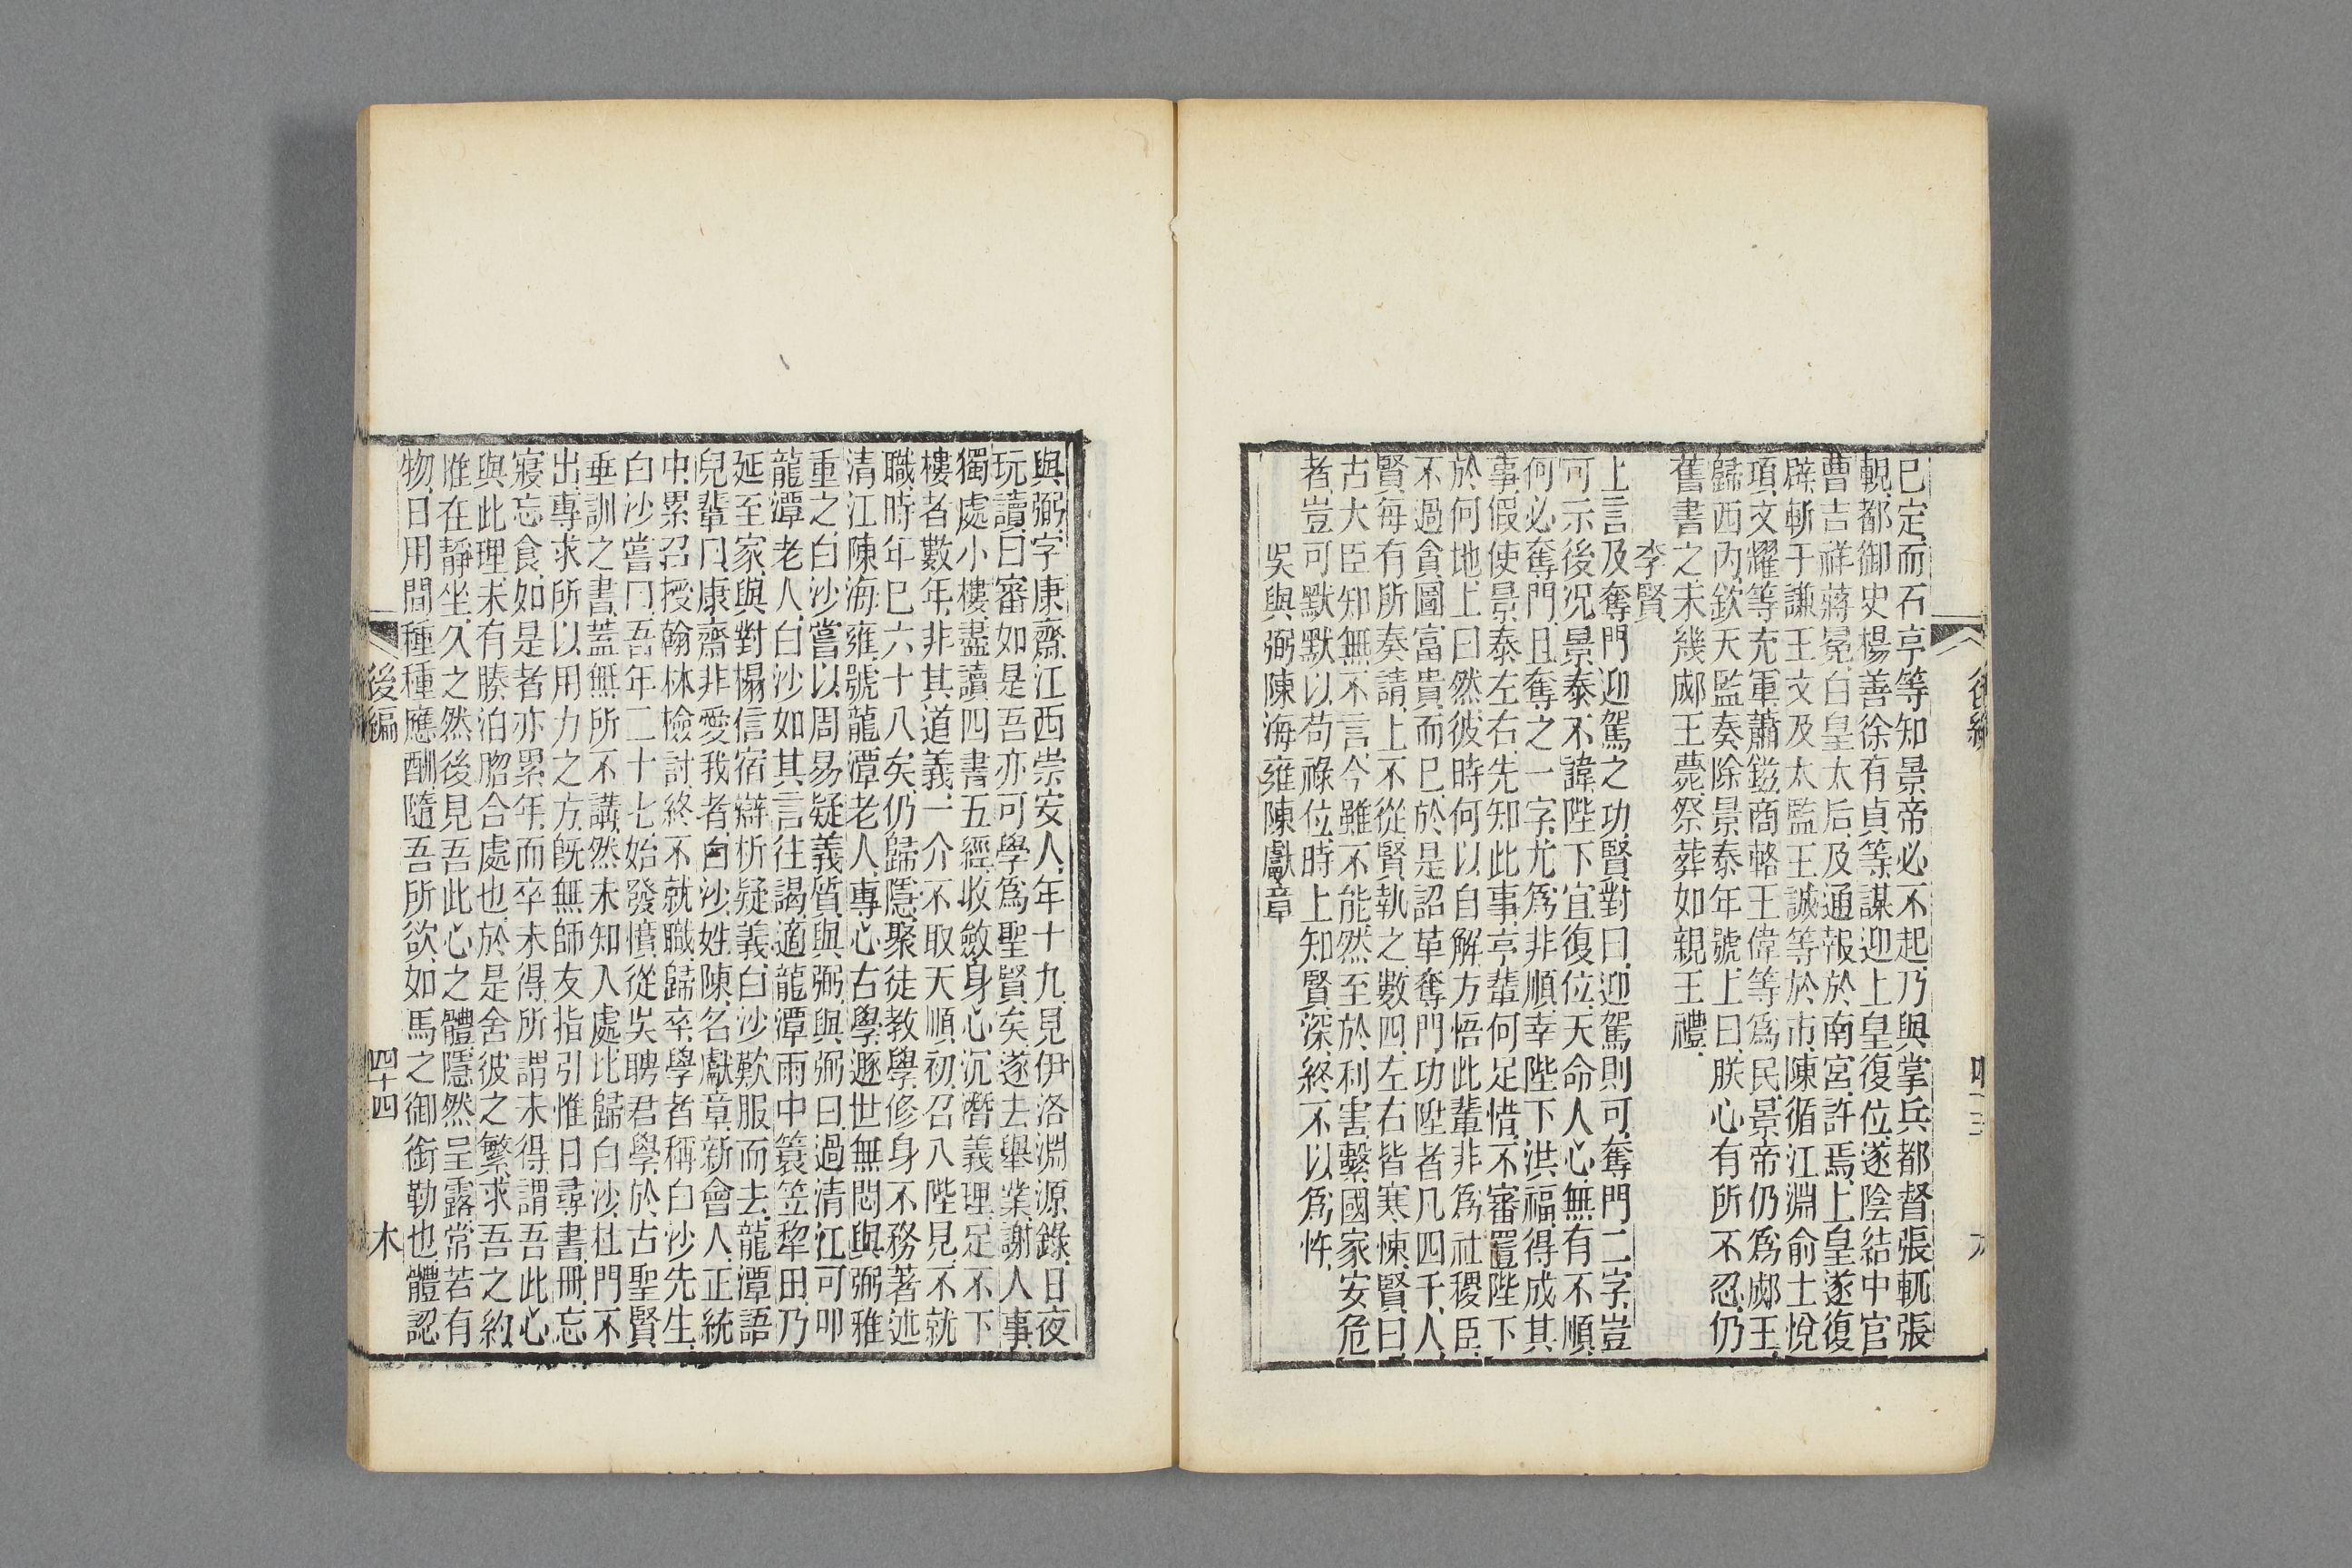 已定而石亨等知景帝必不起乃與掌兵都督張軏張
輗都御史楊善徐有貞等謀迎上皇復位遂陰結中官
曹吉祥蔣冕白皇太后及通報於南宮許焉上皇遂復
辟斬于謙王文及太監王誠等於市陳循江淵俞士悅
項文耀等充軍蕭鎡商輅王偉等爲民景帝仍爲郕王
歸西內欽天監奏除景泰年號上曰朕心有所不忍仍
舊書之未幾郕王薨祭葬如親王禮
李賢
上言及奪門迎駕之功賢對曰迎駕則可奪門二字豈
可示後況景泰不諱陛下宜復位天命人心無有不順
何必奪門且奪之一字尤爲非順幸陛下洪福得成其
事假使景泰左右先知此事亨輩何足惜不審置陛下
於何地上曰然彼時何以自解方悟此輩非爲社稷臣
不過貪圖富貴而已於是詔革奪門功陞者凡四千人
賢每有所奏請上不從賢執之數四左右皆寒悚賢曰
古大臣知無不言今雖不能然至於利害繫國家安危
者豈可默默以苟祿位時上知賢深終不以爲忤
吳與弼陳海雍陳獻章
與弼字康齋江西崇安人年十九見伊洛淵源錄日夜
玩讀曰審如是吾亦可學爲聖賢矣遂去舉業謝人事
獨處小樓盡讀四書五經收斂身心沉潛義理足不下
樓者數年非其道義一介不取天順初召入陛見不就
職時年巳六十八矣仍歸隱聚徒教學修身不務著述
清江陳海雍號龍潭老人專心古學遯世無悶與弼雅
重之白沙嘗以周易疑義質與弼與弼曰過清江可叩
龍潭老人白沙如其言往謁適龍潭雨中簑笠犂田乃
延至家與對榻信宿辯析疑義白沙歎服而去龍潭語
兒輩曰康齋非愛我者白沙姓陳名獻章新會人正統
中累召授翰林檢討終不就職歸卒學者稱白沙先生
白沙嘗曰吾年二十七始發憤從吳聘君學於古聖賢
垂訓之書蓋無所不講然未知入處比歸白沙杜門不
出專求所以用力之方旣無師友指引惟日尋書冊忘
寢忘食如是者亦累年而卒未得所謂未得謂吾此心
與此理未有腠泊脗合處也於是舍彼之繁求吾之約
惟在靜坐久之然後見吾此心之體隱然呈露常若有
物日用間種種應酬隨吾所欲如馬之御銜勒也體認
後編
四十四
木